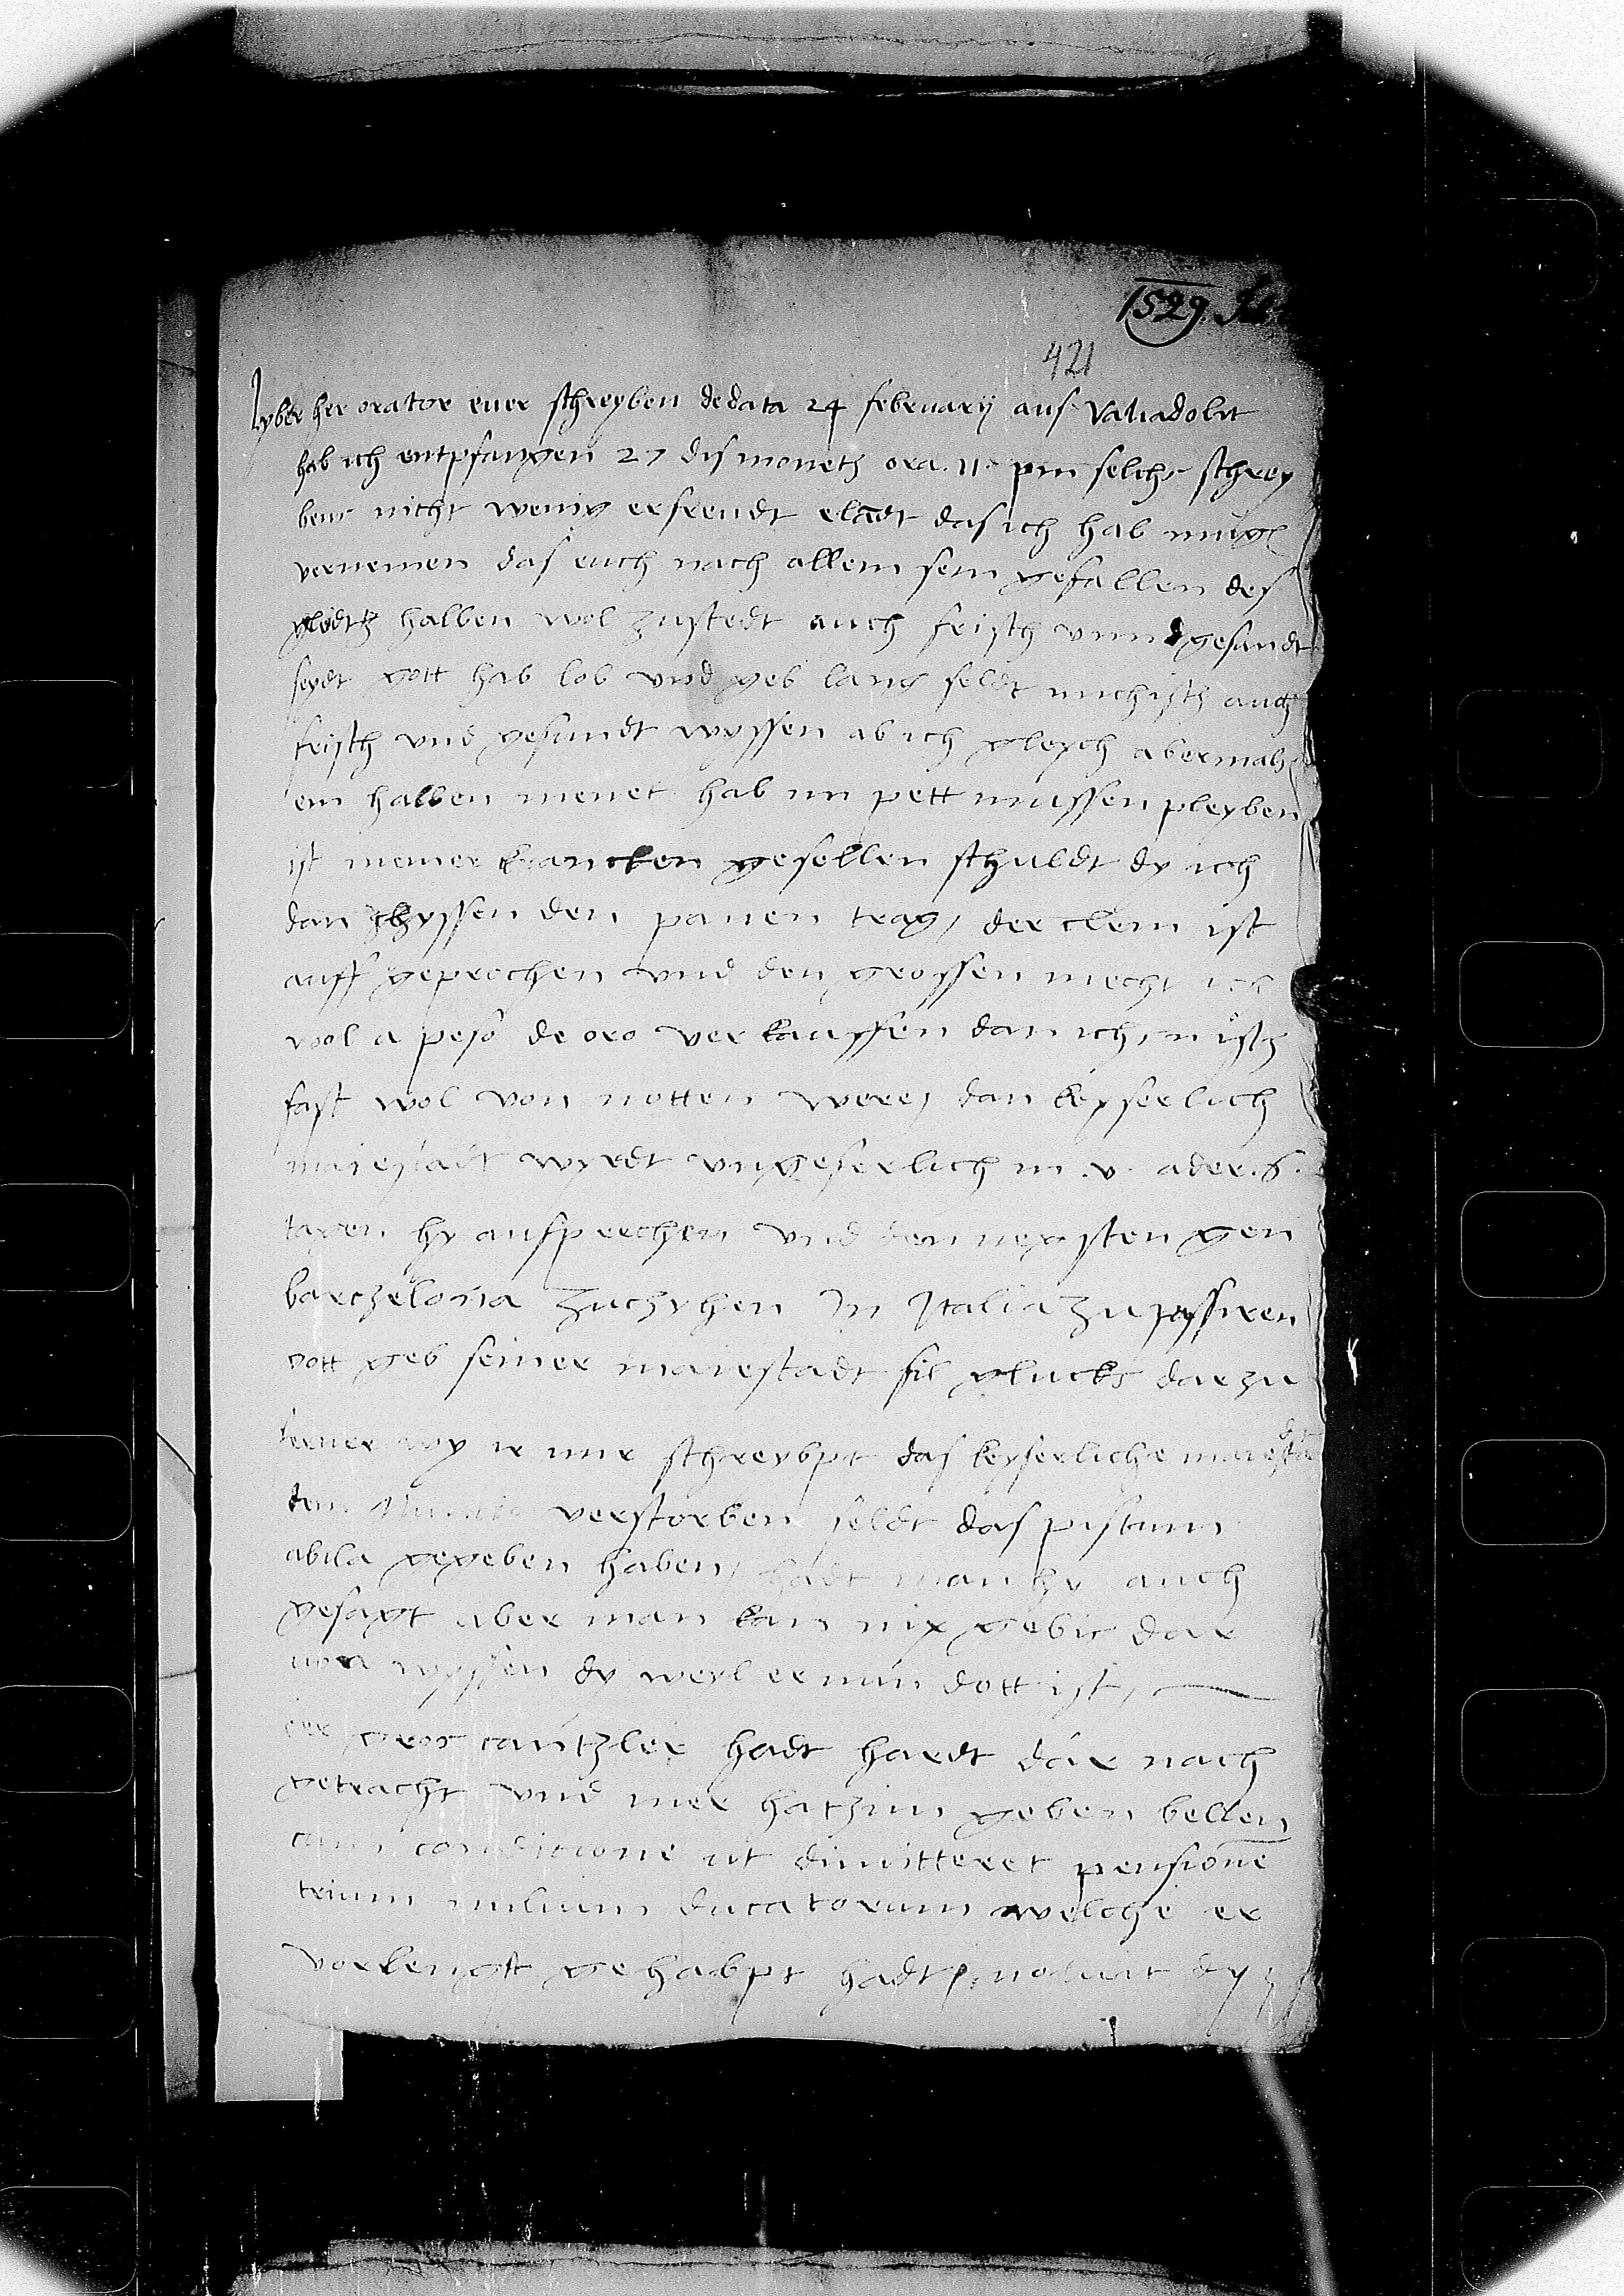 1529. Feb
421
Lyber her orator euer schreyben de data 24 februarij aus Valiadolit
hab ich entpfangen 27 dis monetz ora. 11. pin selchs schrey
bens nicht wenig erfreudt das ich hab mugen
vernemen das euch nach allem sein gefallen des
halben wol zustedt auch frisch vnnd gesundt
seydt gott hab lob vnd geb lang seldt mich auch
frisch vnd gesundt wyssen ab ich gleych abermals
ein halben monet hab im pett mussen pleyben
ist meiner krancken gesellen schuldt dy ich
dan zwyssen den panen trag, der clein ist
auff geprochen vnd den grossen mecht ich
wol a peso de oro verkauffen dan ich
fast wol von notten were, dan keyserlich
maiestadt wyrdt vngeferlich in .v. ader .6.
tagen hy aufprechen vnd den nexsten gen
barczelona zuchyhen in Italia zu passiren
gott geb seiner maiestadt fil glucks darzu
ferner wy ir mir schreybpt das keyserliche maiestadt
dem Nuncio verstorben seldt das pistum
abila gegeben haben, hadt man hy auch
gesagt aber man kan nix gebis dar
uon wyssen dy weyl er nun dott ist,
der gros cantzler hadt hardt dar nach
getracht vnd mer hatz im geben bellen
cum conditione ut dimitteret pensione
trium milium ducatorum welche er
vorlengst gehabpt hadt, noluit dy